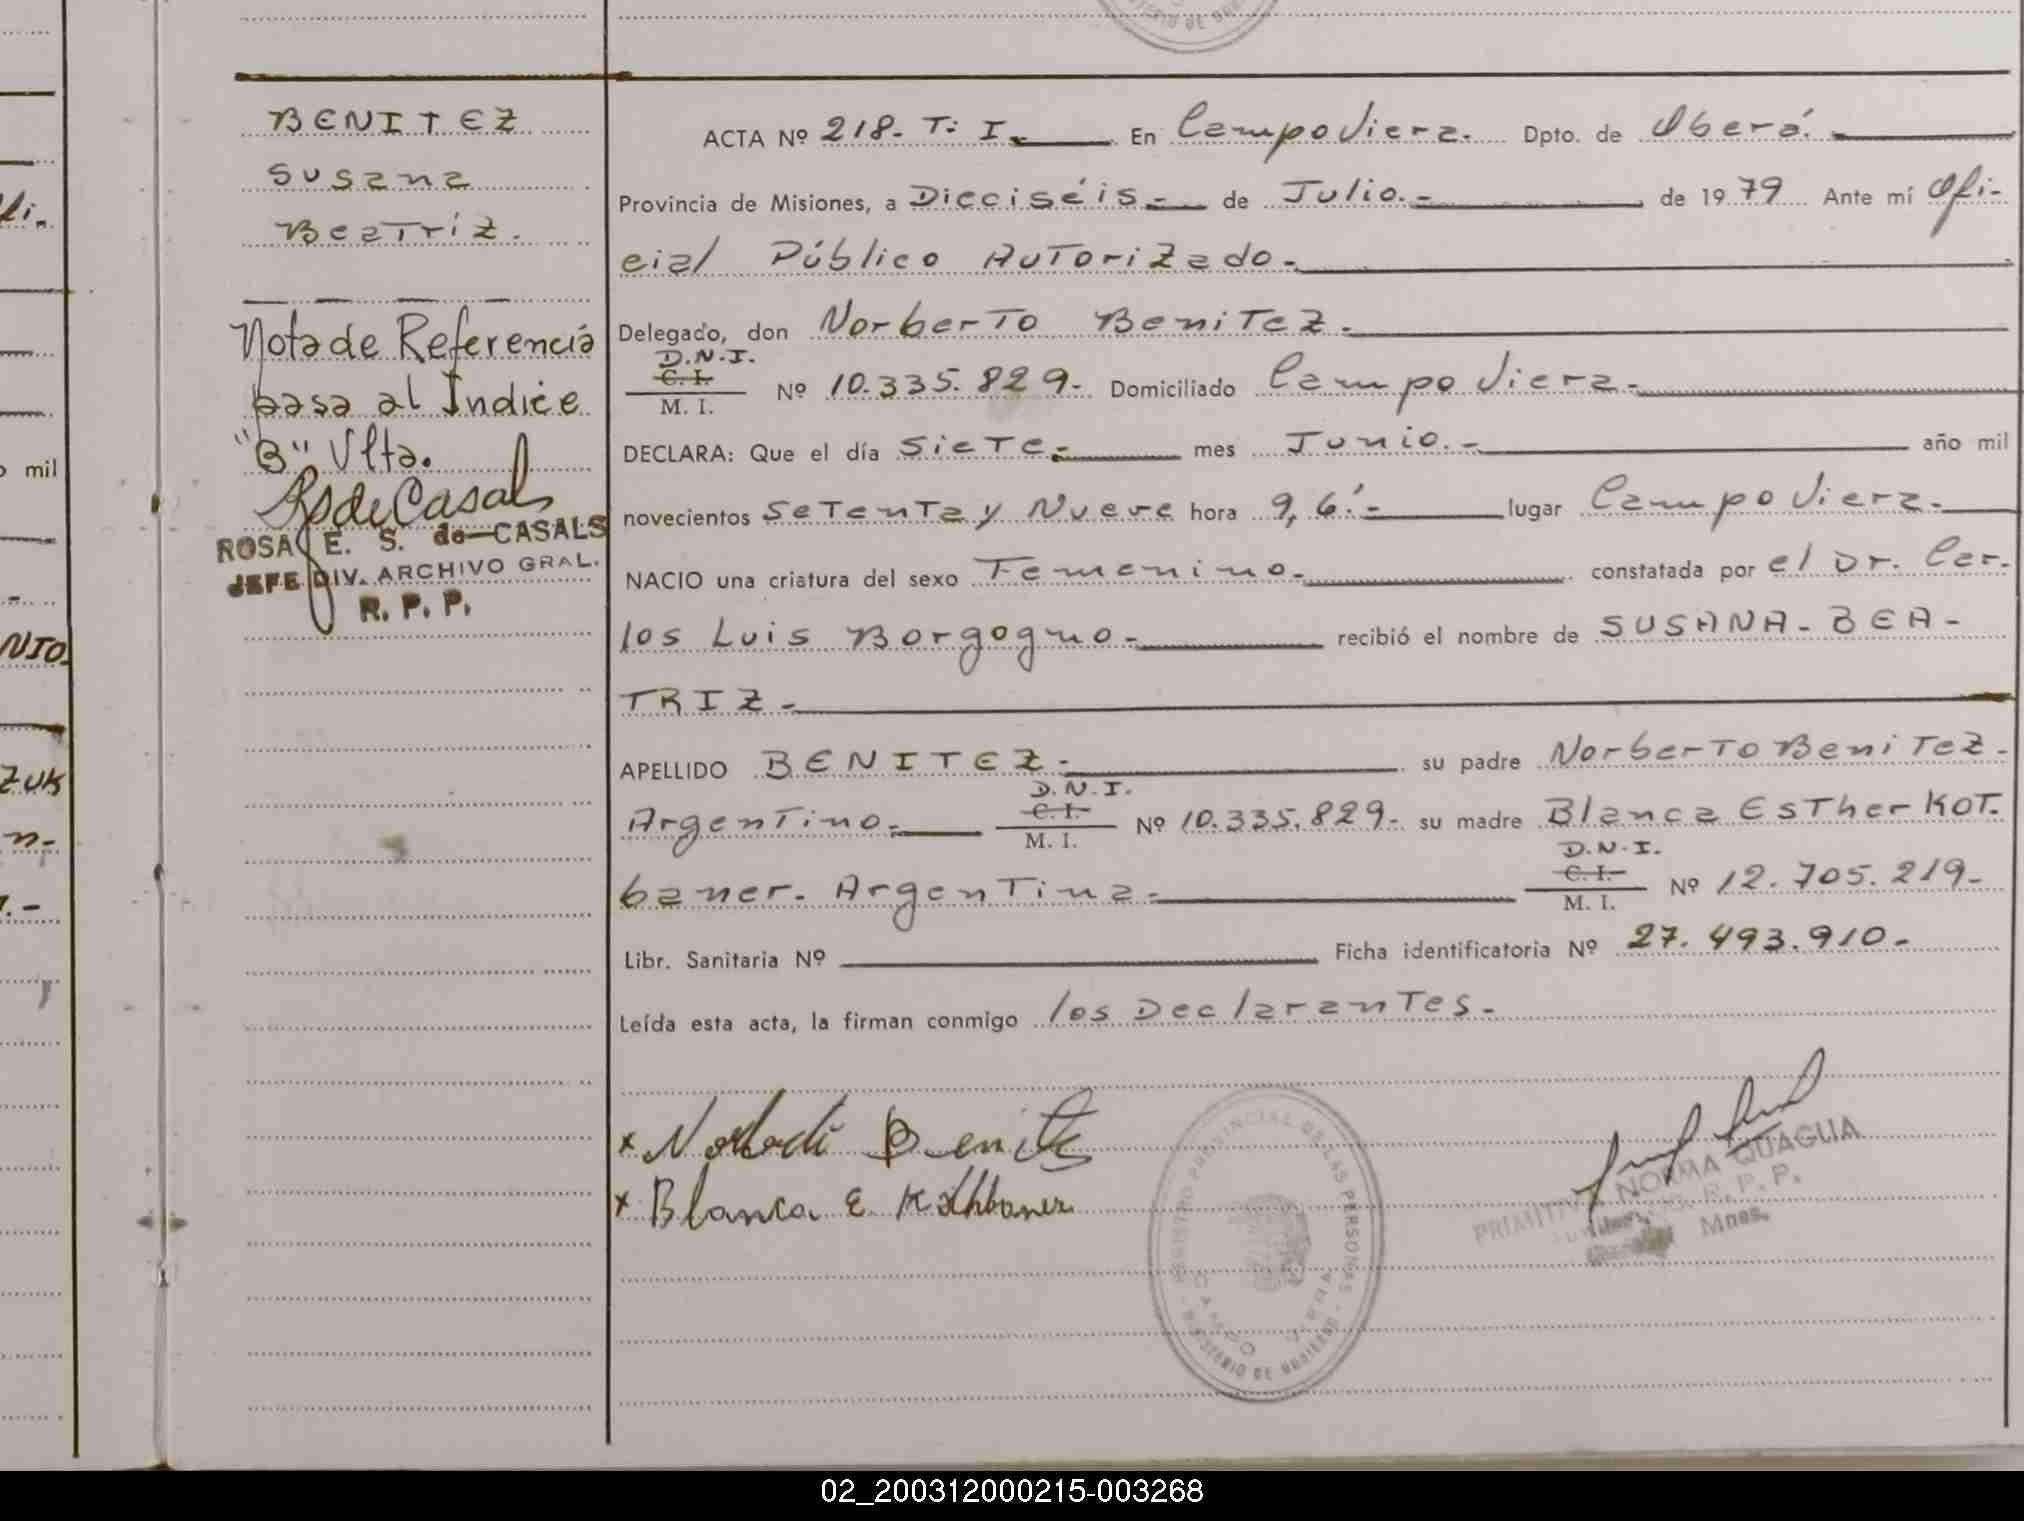 BENITEZ
Susana
Beatriz.
Nota de Referencia
pasa al Indice
"B" Vlta.
RSdeCasals
ROSA E. S. de CASALS
JEFE DIV. ARCHIVO GRAL.
R. P. P.
ACTA Nº 218. T: I. En Campo Viera. Dpto. de Oberá.
Provincia de Misiones, a Dieciséis de Julio. de 1979 Ante mí Ofi-
cial Público Autorizado.
Delegado, don Norberto Benitez.
D.N.I.
C. I.
M. I.
Nº 10.335.829. Domiciliado Campo Viera.
DECLARA: Que el día Siete. mes Junio. año mil
novecientos Setenta y Nueve hora 9,6'. lugar Campo Viera.
NACIO una criatura del sexo Femenino. constatada por el Dr. Car-
los Luis Borgogno. recibió el nombre de SUSANA-BEA-
TRIZ.
APELLIDO BENITEZ. su padre Norberto Benitez.
Argentino. D.N.I. C. I. M. I. Nº 10.335.829. su madre Blanca Esther KOT.
baner. Argentina. D.N.I. C. I. M. I. Nº 12.705.219.
Libr. Sanitaria Nº Ficha identificatoria Nº 27.493.910.
Leída esta acta, la firman conmigo los Declarantes.
x Benitez
x Blanca E.
REGISTRO PROVINCIAL DE LAS PERSONAS
MINISTERIO DE GOBIERNO
CAMPO VIERA
PRIMITIVA NORMA QUAGLIA
R. P. P.
Mnes.
fi-
o mil
NIO.
ZUK
n-
MINISTERIO DE GOBIERNO
02_200312000215-003268